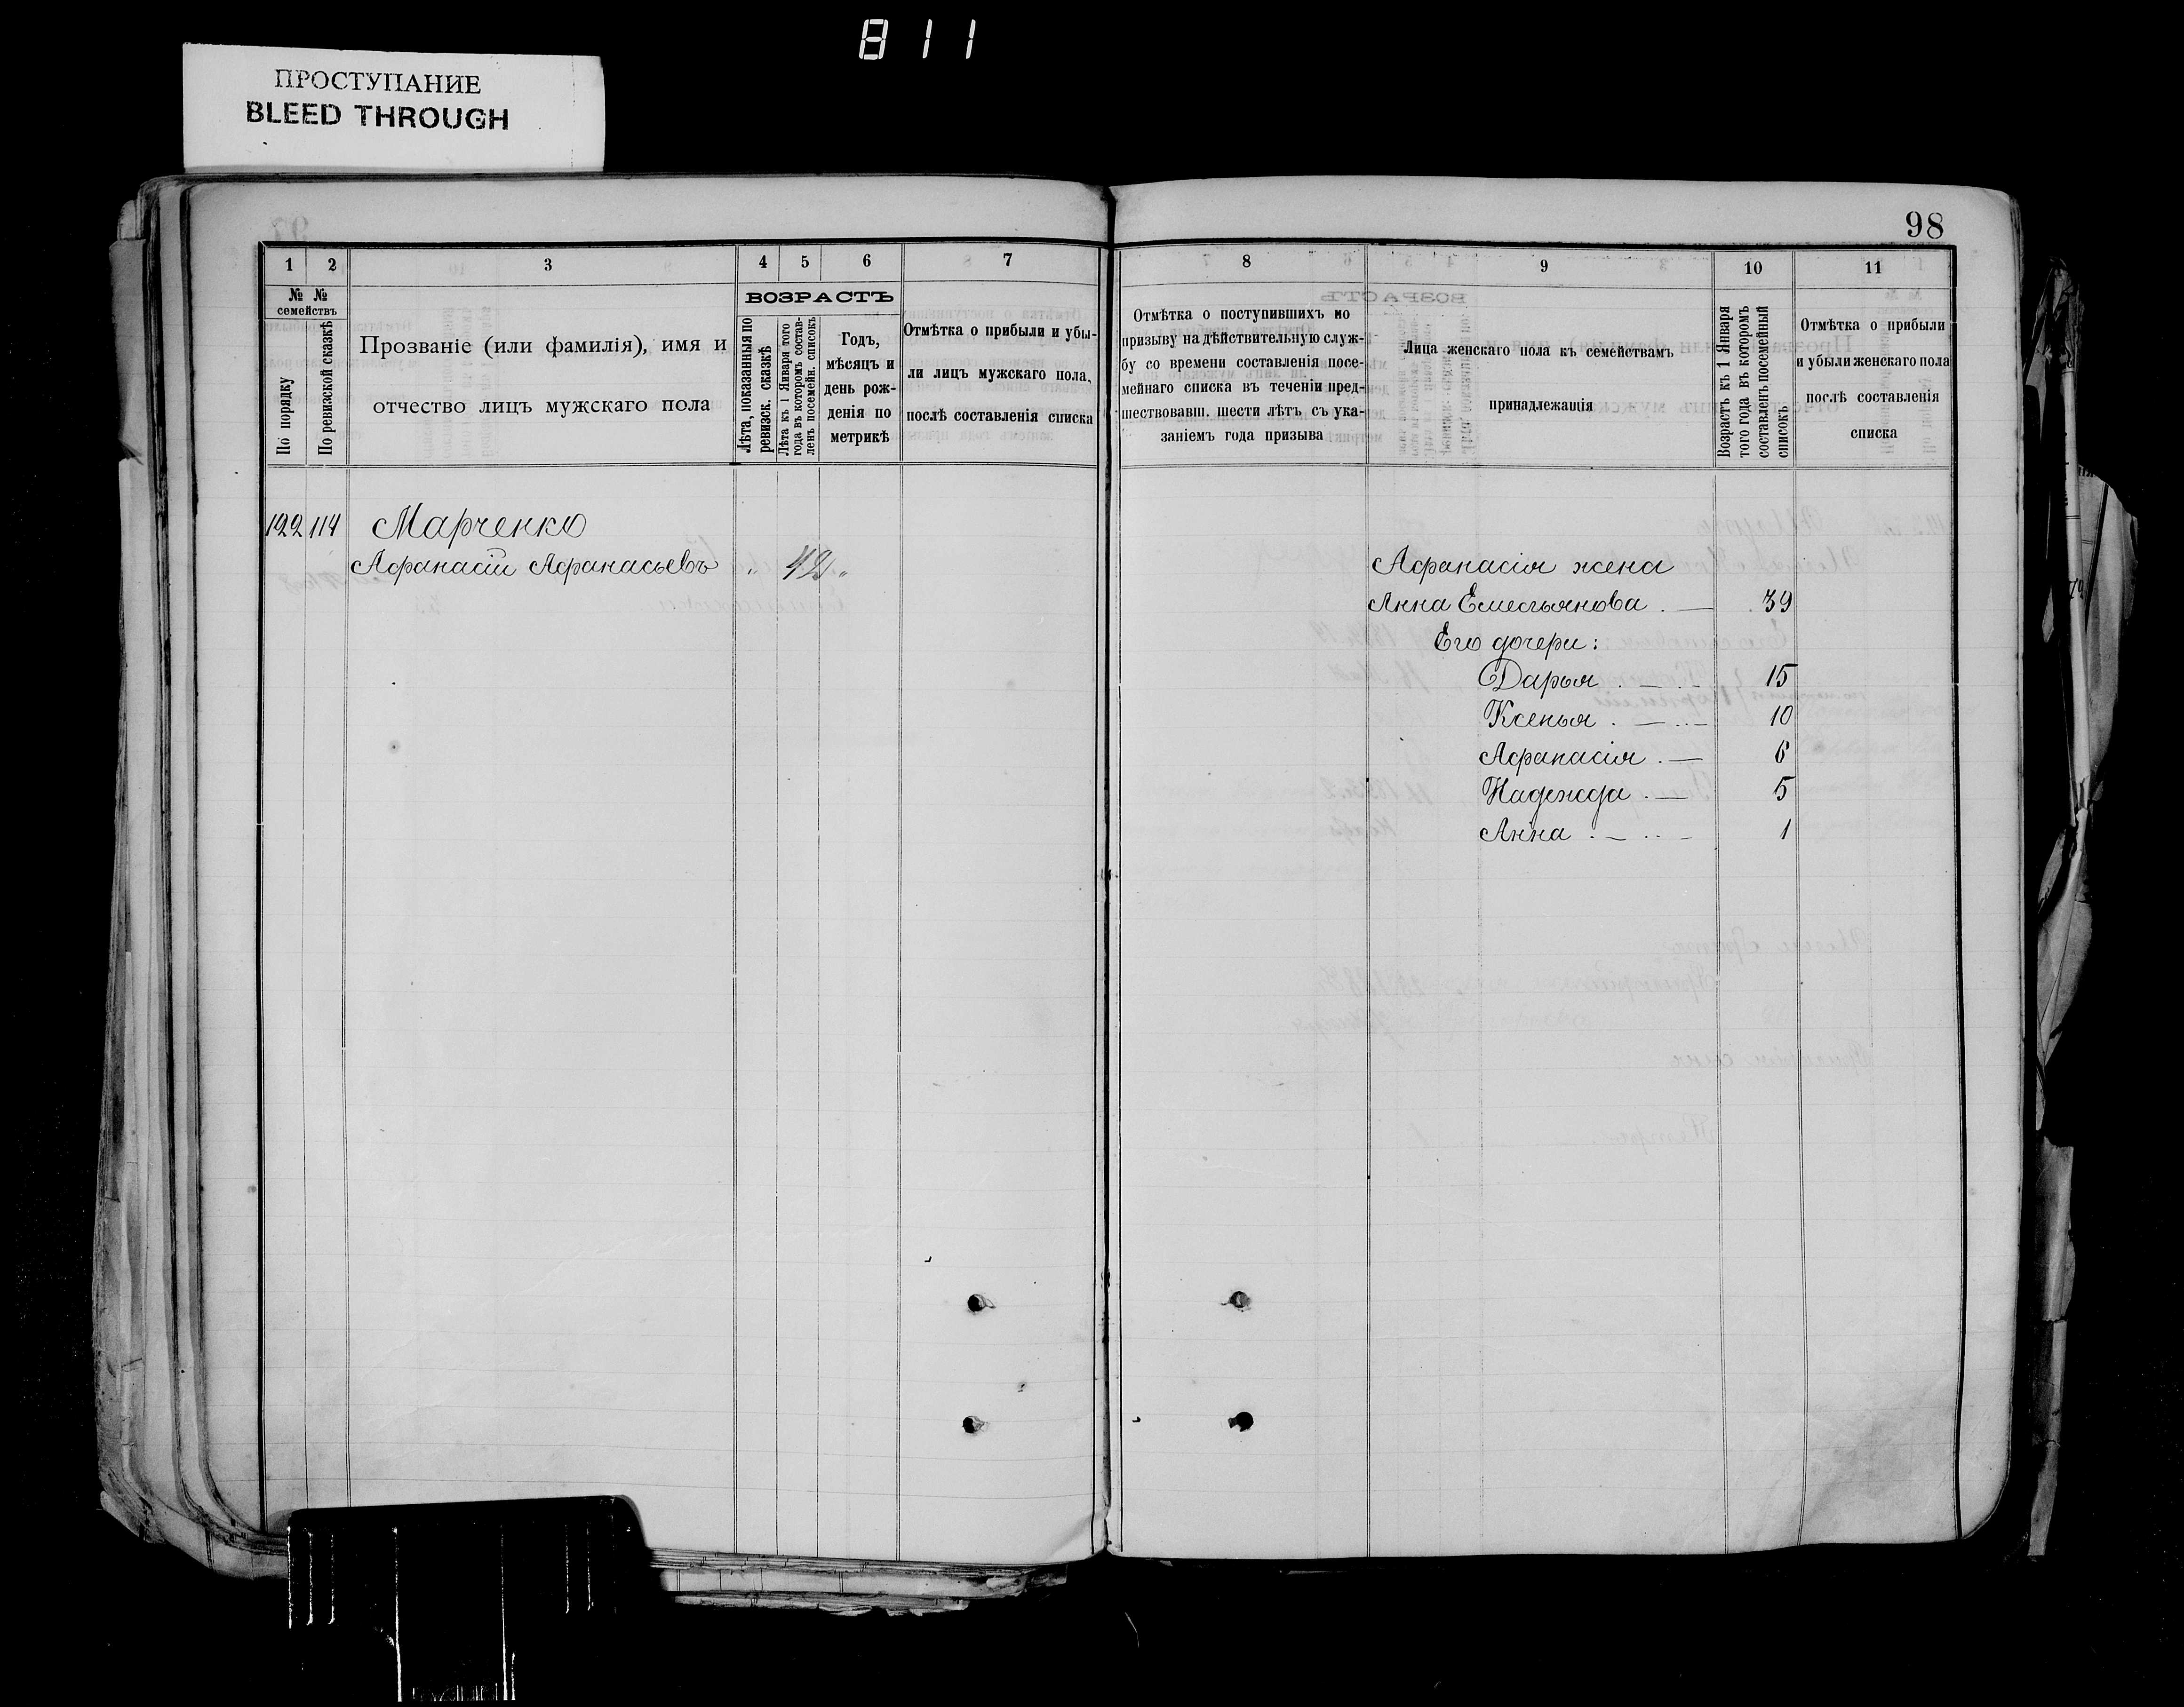 811
ПРОСТУПАНИЕ
BLEED THROUGH
98
1 2 3 4 5 6 7
№ №
семействъ
По порядку
По ревизской сказкѣ
Прозваніе (или фамилія), имя и
отчество лицъ мужскаго пола
ВОЗРАСТЪ
Лѣта, показанныя по
ревизск. сказкѣ
Лѣта къ 1 Января того
года въ которомъ состав-
ленъ посемейн. списокъ
Годъ,
мѣсяцъ и
день рож-
денія по
метрикѣ
Отмѣтка о прибыли и убы-
ли лицъ мужскаго пола,
послѣ составленія списка
122 114 Марченко
Афанасій Афанасьевъ „ 42 „
8 9 10 11
Отмѣтка о поступившихъ по
призыву на дѣйствительную служ-
бу со времени составленія посе-
мейнаго списка въ теченіи пред-
шествовавш. шести лѣтъ съ ука-
заніемъ года призыва
Лица женскаго пола къ семействамъ
принадлежащія
Возрастъ къ 1 Января
того года въ которомъ
составленъ посемейный
списокъ
Отмѣтка о прибыли
и убыли женскаго пола
послѣ составленія
списка
Афанасія жена
Анна Емельянова . — 39
Его дочери:
Дарья . — . . 15
Ксенья . — .. — 10
Афанасія . — 6
Надежда . — 5
Анна . — .. — 1